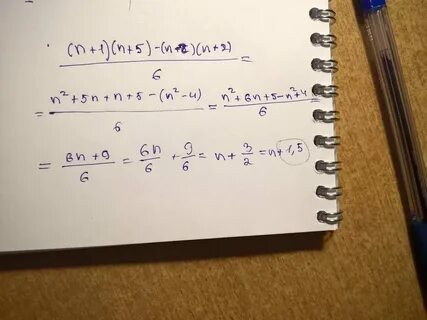 (n+1)(n+5)-(n-2)(n+2)/6 =
= n²+5n+n+5-(n²-4)/6 = n²+6n+5-n²+4/6 =
= 6n+9/6 = 6n/6 + 9/6 = n + 3/2 = n+1,5